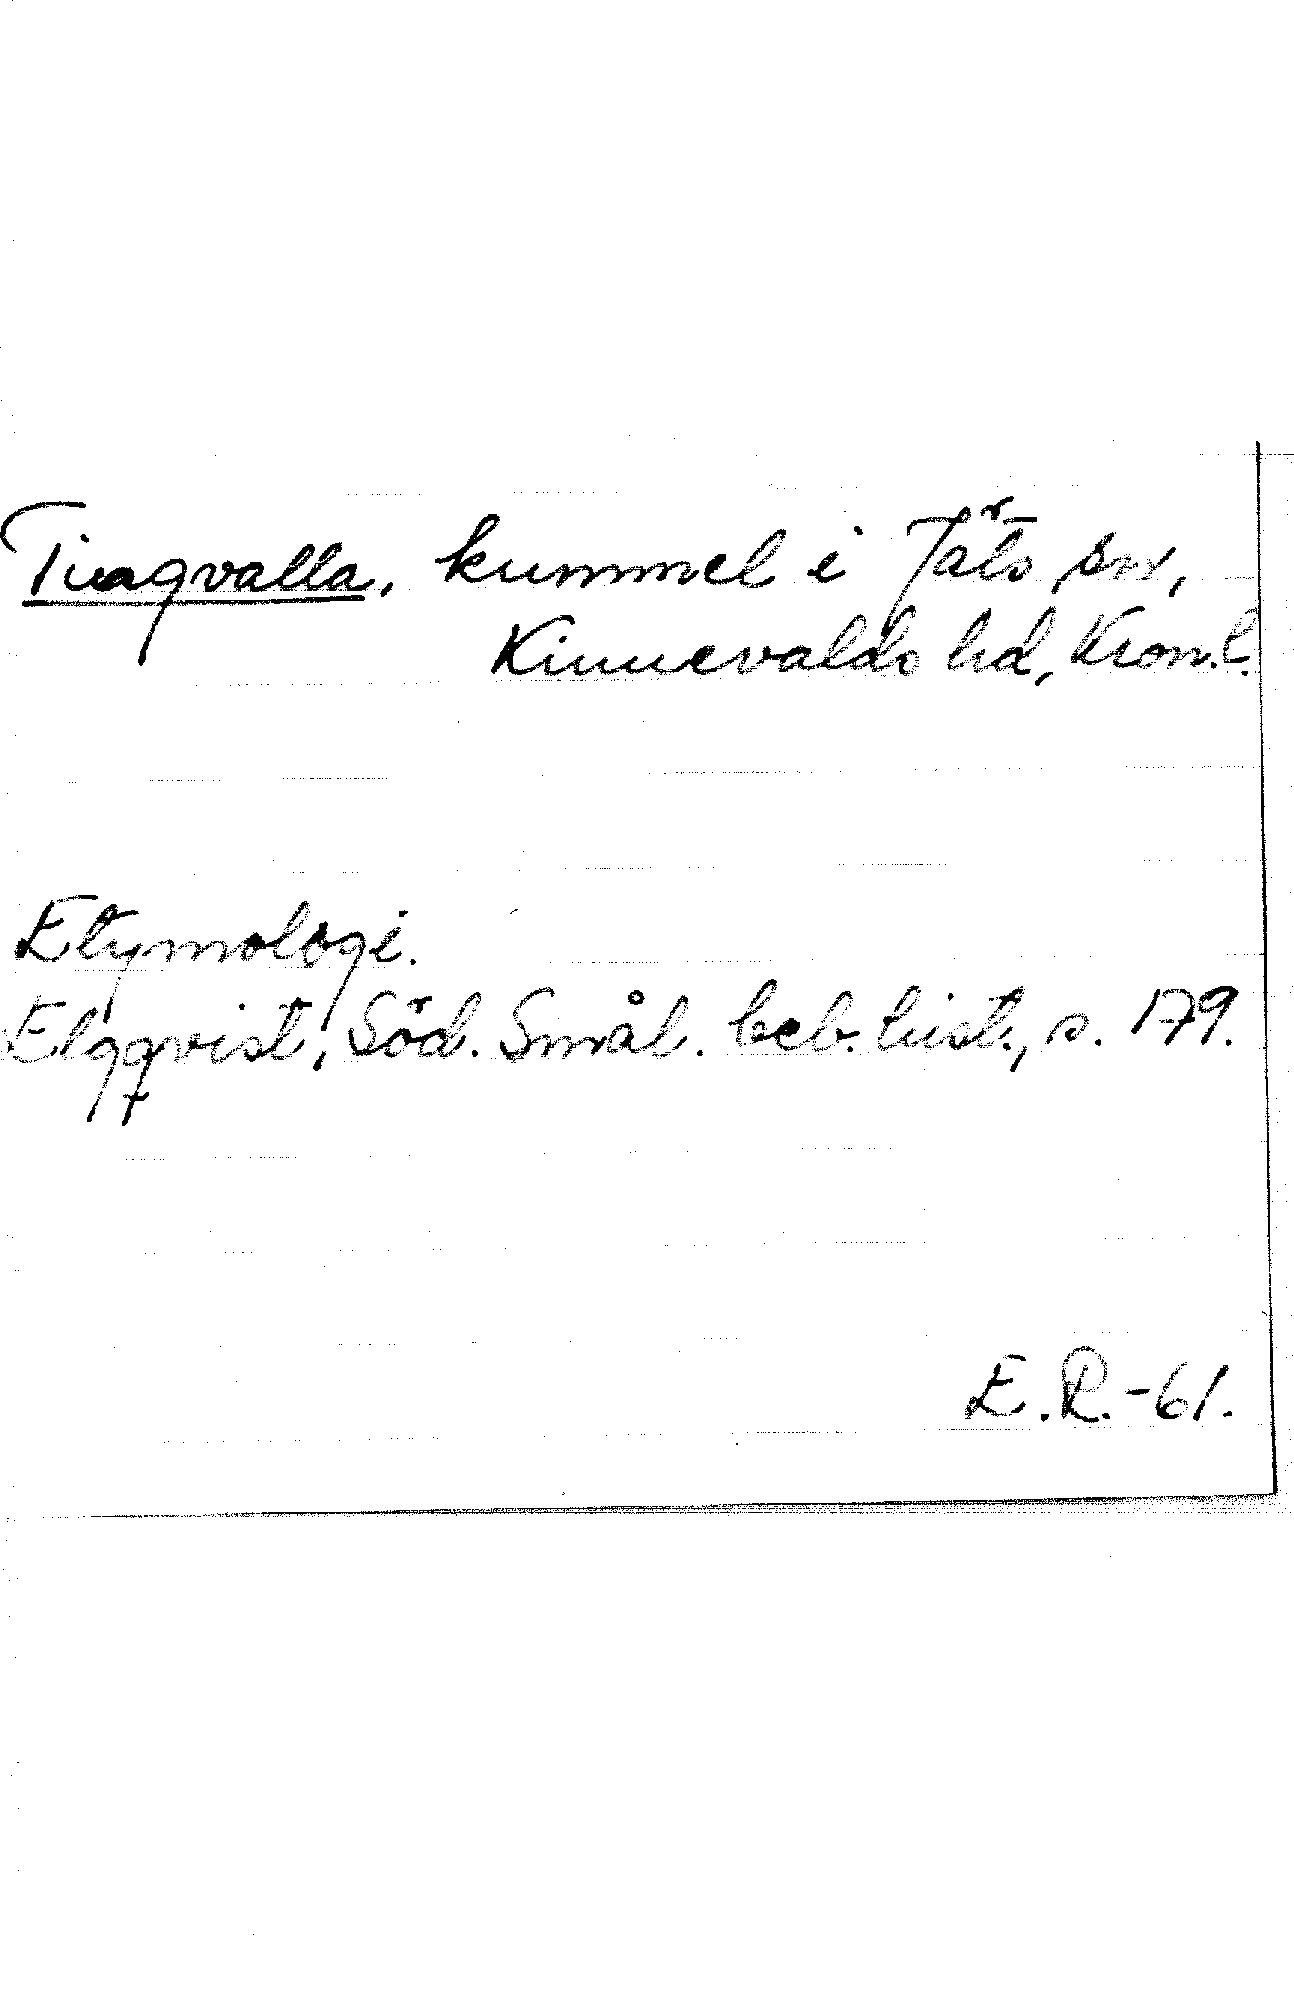 Tiragvalla, kummel i Jäts sn,
Kinnevalds hd, Kron.l.
Etymologi.
Elgqvist, Söd. Smål. beb. hist., s. 179.
E.R.-61.